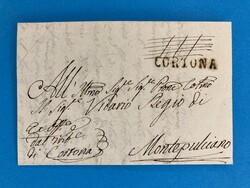 CORTONA
All' Illmo Sigre Sigre Prone Colmo
Il Sigre Vicario Regio di
Montepulciano
Ex offo
dal
di Cortona